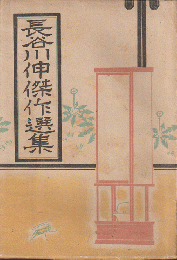 長谷川伸傑作選集